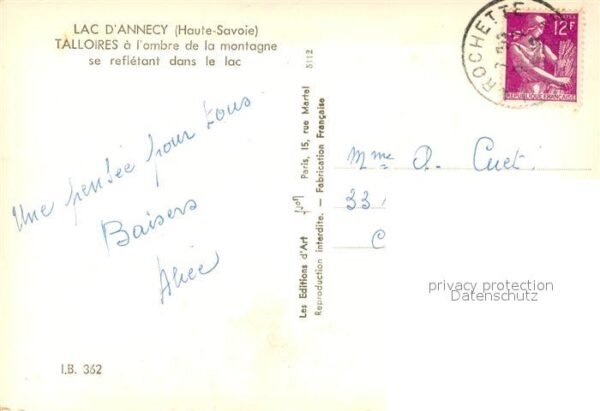 LAC D'ANNECY (Haute-Savoie)
TALLOIRES à l'ombre de la montagne
se reflétant dans le lac
Une pensée pour tous
Baisers
Alice
I.B. 362
5112
Les Editions d'Art Yvon Paris, 15, rue Martel
Reproduction interdite. - Fabrication Française
ROCHETTE
POSTES
12F
REPUBLIQUE FRANÇAISE
Mme A. Cuet
33
C
privacy protection
Datenschutz